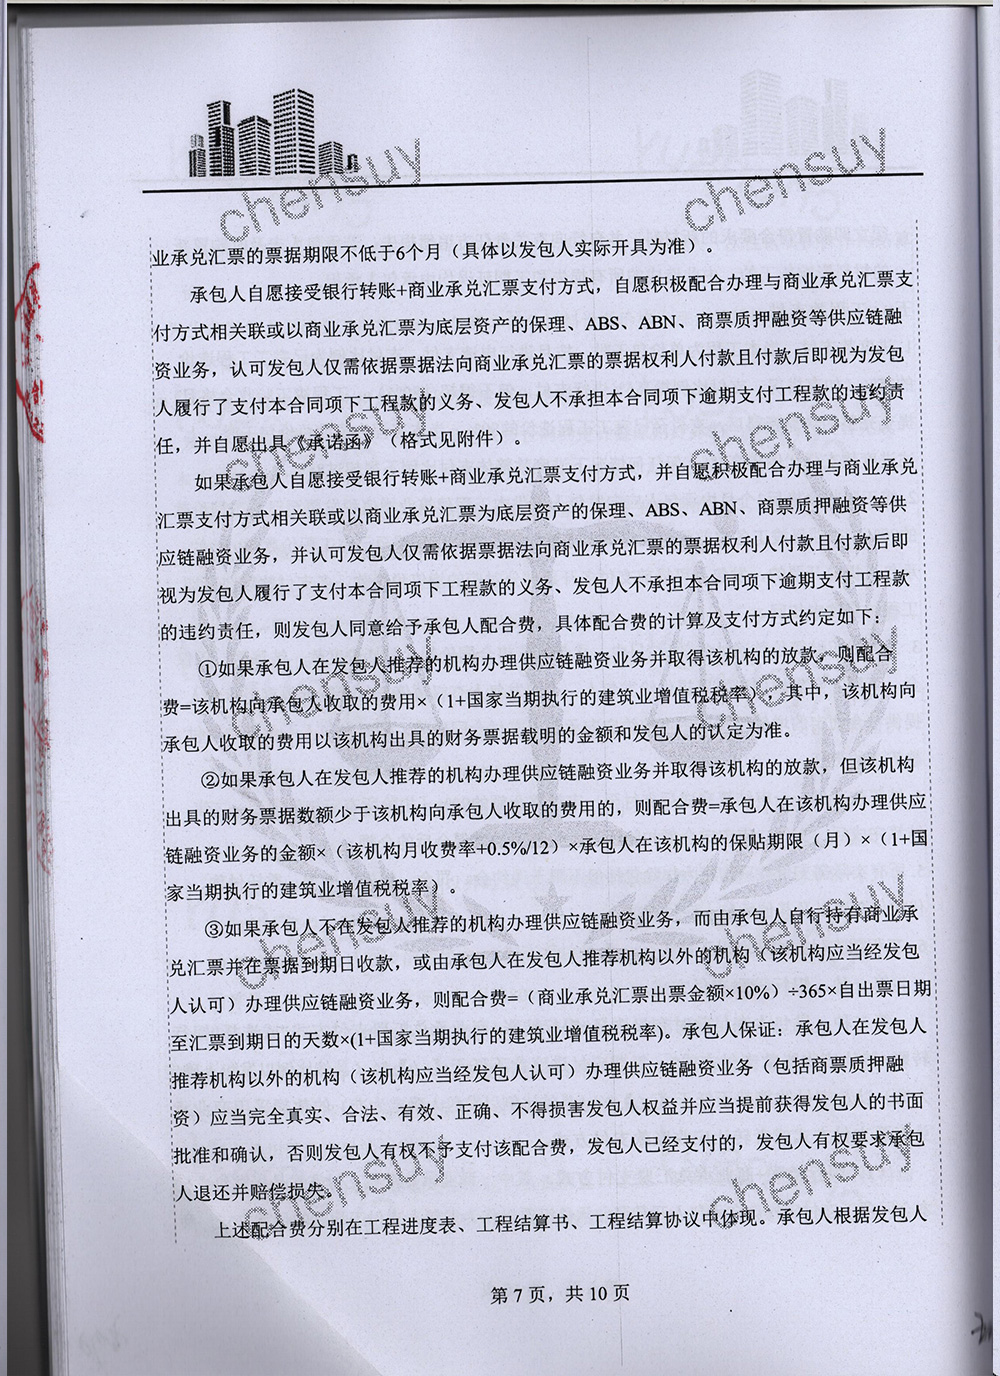 业承兑汇票的票据期限不低于6个月（具体以发包人实际开具为准）。
承包人自愿接受银行转账+商业承兑汇票支付方式，自愿积极配合办理与商业承兑汇票支
付方式相关联或以商业承兑汇票为底层资产的保理、ABS、ABN、商票质押融资等供应链融
资业务，认可发包人仅需依据票据法向商业承兑汇票的票据权利人付款且付款后即视为发包
人履行了支付本合同项下工程款的义务、发包人不承担本合同项下逾期支付工程款的违约责
任，并自愿出具《承诺函》（格式见附件）。
如果承包人自愿接受银行转账+商业承兑汇票支付方式，并自愿积极配合办理与商业承兑
汇票支付方式相关联或以商业承兑汇票为底层资产的保理、ABS、ABN、商票质押融资等供
应链融资业务，并认可发包人仅需依据票据法向商业承兑汇票的票据权利人付款且付款后即
视为发包人履行了支付本合同项下工程款的义务、发包人不承担本合同项下逾期支付工程款
的违约责任，则发包人同意给予承包人配合费，具体配合费的计算及支付方式约定如下：
①如果承包人在发包人推荐的机构办理供应链融资业务并取得该机构的放款，则配合
费=该机构向承包人收取的费用×（1+国家当期执行的建筑业增值税税率），其中，该机构向
承包人收取的费用以该机构出具的财务票据载明的金额和发包人的认定为准。
②如果承包人在发包人推荐的机构办理供应链融资业务并取得该机构的放款，但该机构
出具的财务票据数额少于该机构向承包人收取的费用的，则配合费=承包人在该机构办理供应
链融资业务的金额×（该机构月收费率+0.5%/12）×承包人在该机构的保贴期限（月）×（1+国
家当期执行的建筑业增值税税率）。
③如果承包人不在发包人推荐的机构办理供应链融资业务，而由承包人自行持有商业承
兑汇票并在票据到期日收款，或由承包人在发包人推荐机构以外的机构（该机构应当经发包
人认可）办理供应链融资业务，则配合费=（商业承兑汇票出票金额×10%）÷365×自出票日期
至汇票到期日的天数×(1+国家当期执行的建筑业增值税税率)。承包人保证：承包人在发包人
推荐机构以外的机构（该机构应当经发包人认可）办理供应链融资业务（包括商票质押融
资）应当完全真实、合法、有效、正确、不得损害发包人权益并应当提前获得发包人的书面
批准和确认，否则发包人有权不予支付该配合费，发包人已经支付的，发包人有权要求承包
人退还并赔偿损失。
上述配合费分别在工程进度表、工程结算书、工程结算协议中体现。承包人根据发包人
第 7 页，共 10 页
chensuy
chensuy
chensuy
chensuy
chensuy
chensuy
chensuy
chensuy
chensuy
chensuy